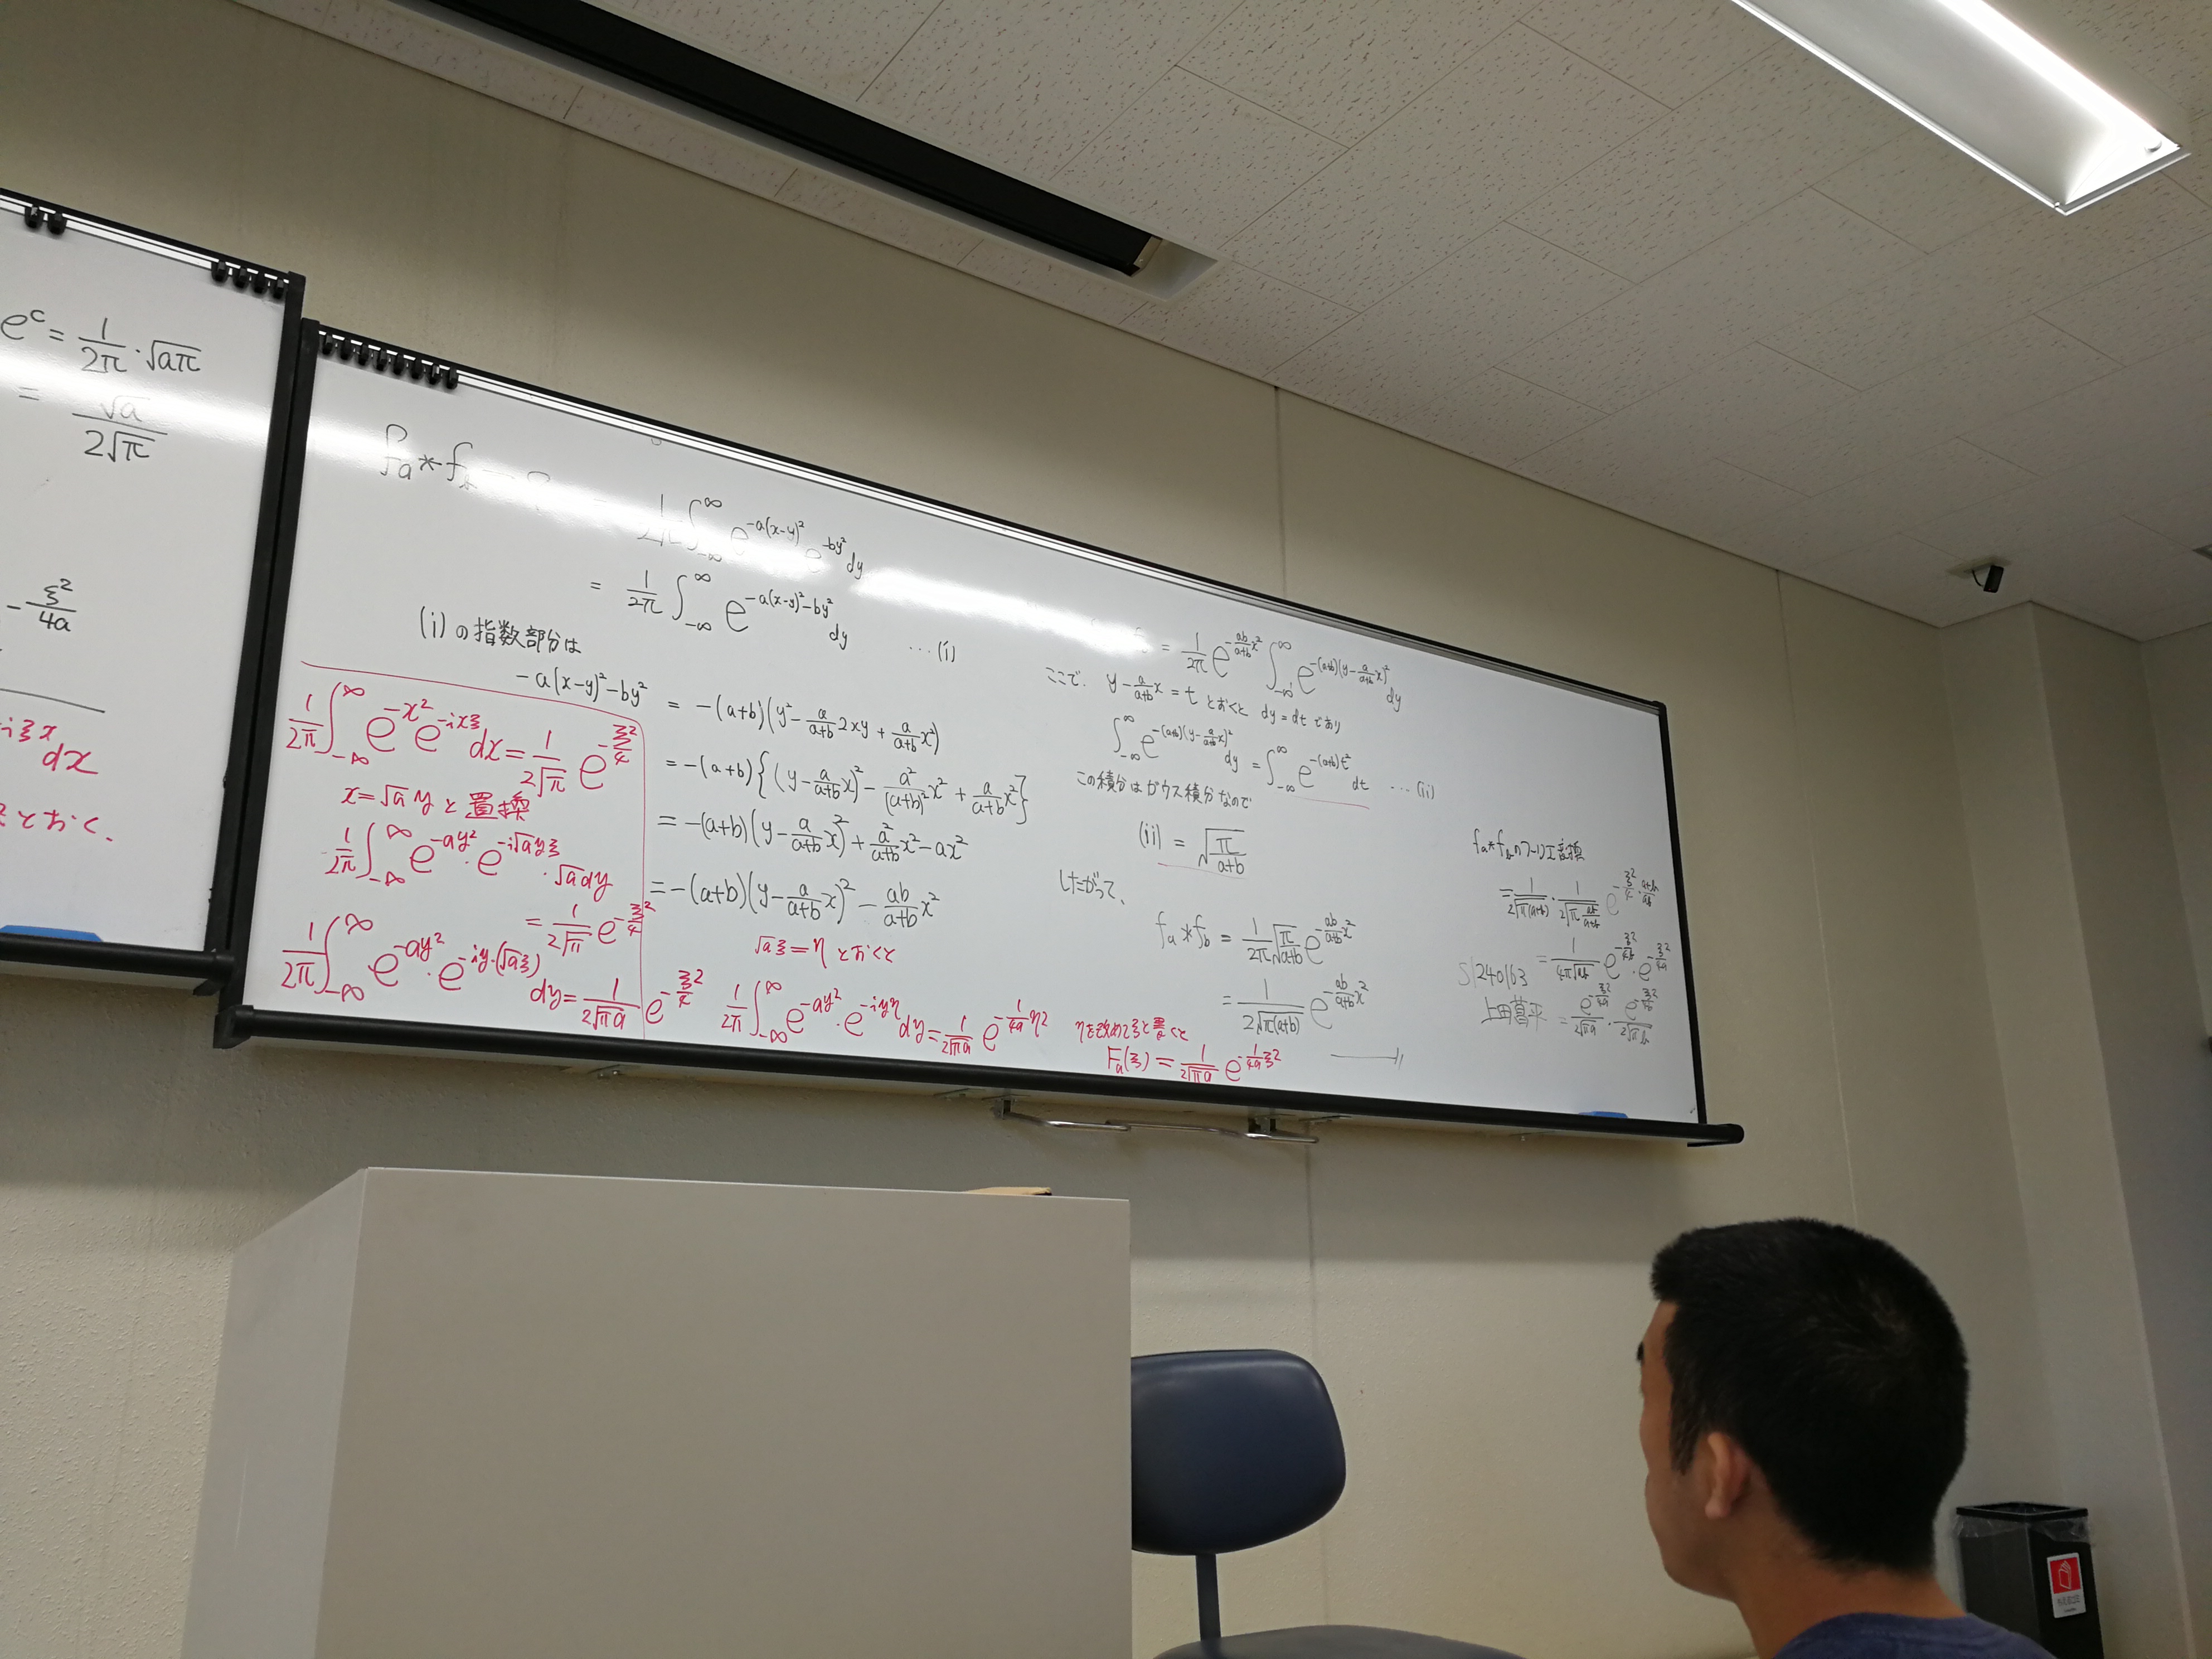 e^c = 1/2π · √aπ
= √a/2√π
-ξ²/4a
-iξx dx
とおく.
fa * fb
1/2π ∫_{-∞}^{∞} e^{-a(x-y)²} e^{-by²} dy
= 1/2π ∫_{-∞}^{∞} e^{-a(x-y)²-by²} dy …(i)
(i)の指数部分は
-a(x-y)²-by² = -(a+b)(y² - a/(a+b) 2xy + a/(a+b) x²)
= -(a+b){(y - a/(a+b) x)² - a²/(a+b)² x² + a/(a+b) x²}
= -(a+b)(y - a/(a+b) x)² + a²/(a+b) x² - ax²
= -(a+b)(y - a/(a+b) x)² - ab/(a+b) x²
1/2π ∫_{-∞}^{∞} e^{-x²} e^{-ixξ} dx = 1/2√π e^{-ξ²/4}
x=√a y と置換
1/2π ∫_{-∞}^{∞} e^{-ay²} · e^{-i√a yξ} · √a dy
= 1/2√π e^{-ξ²/4}
1/2π ∫_{-∞}^{∞} e^{-ay²} · e^{-iy·(√aξ)} dy = 1/2√πa e^{-ξ²/4}
√aξ = η とおくと
1/2π ∫_{-∞}^{∞} e^{-ay²} · e^{-iyη} dy = 1/2√πa e^{-1/4a η²}
ηを改めてξと置くと
Fa(ξ) = 1/2√πa e^{-1/4a ξ²}
= 1/2π e^{-ab/(a+b) x²} ∫_{-∞}^{∞} e^{-(a+b)(y - a/(a+b) x)²} dy
ここで. y - a/(a+b) x = t とおくと dy = dt であり
∫_{-∞}^{∞} e^{-(a+b)(y - a/(a+b) x)²} dy = ∫_{-∞}^{∞} e^{-(a+b)t²} dt …(ii)
この積分はガウス積分なので
(ii) = √(π/(a+b))
したがって、
fa * fb = 1/2π √(π/(a+b)) e^{-ab/(a+b) x²}
= 1/2√π(a+b) e^{-ab/(a+b) x²}
fa*fbのフーリエ変換
= 1/2√π(a+b) · 1/2√(π ab/(a+b)) e^{-ξ²/4 · (a+b)/ab}
= 1/4π√ab e^{-ξ²/4b} · e^{-ξ²/4a}
= e^{-ξ²/4a}/2√πa · e^{-ξ²/4b}/2√πb
S1240163
上田